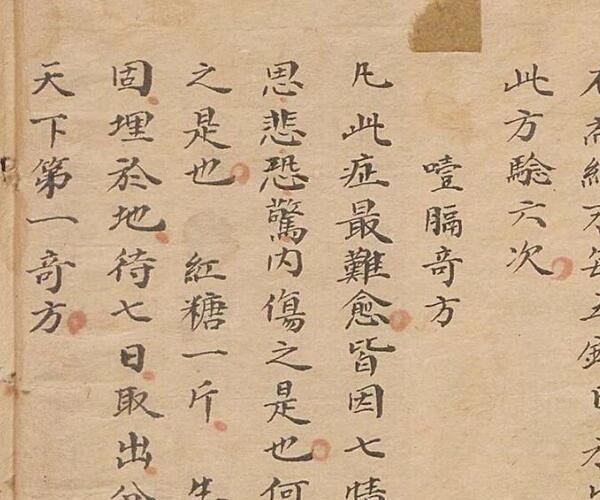 此方驗六次
噎膈奇方
凡此症最難愈皆因七情
思悲恐驚内傷之是也何
之是也 紅糖一斤
固埋於地待七日取出
天下第一奇方